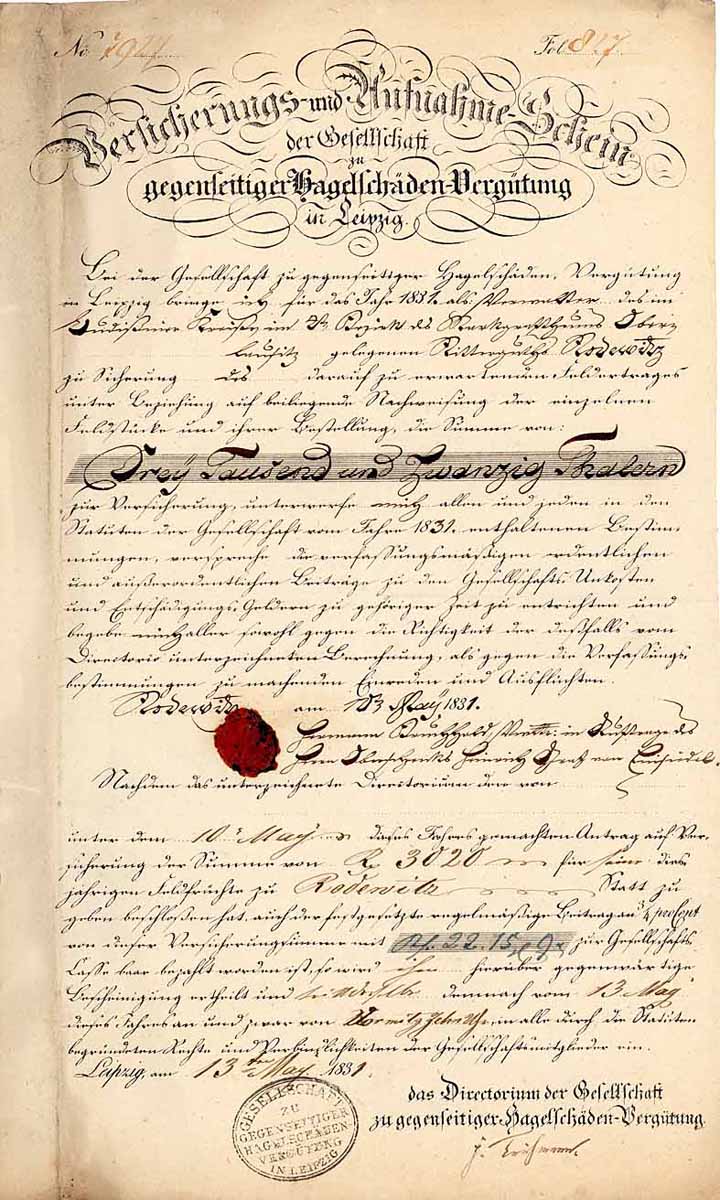 No 7927. Fol 817.
Versicherungs- und Aufnahme-Schein
der Gesellschaft
zu
gegenseitiger Hagelschäden-Vergütung
in Leipzig.
Bei der Gesellschaft zu gegenseitiger Hagelschäden-Vergütung
in Leipzig bringe ich für das Jahr 1831. als Verwalter des im
Budissiner Kreise im Bezirk des Markgrafthums Ober
lausitz gelegenen Ritterguths Rodewitz
zu Sicherung des darauf zu erwartenden Feldertrages
unter Beziehung auf beiliegende Nachweisung der einzelnen
Feldstücke und ihrer Bestellung, die Summe von:
Drey Tausend und Zwanzig Thalern
zur Versicherung, unterwerfe mich allen und jeden in den
Statuten der Gesellschaft vom Jahre 1831. enthaltenen Bestim-
mungen, verspreche die verfassungsmäßigen ordentlichen
und außerordentlichen Beiträge zu den Gesellschafts-Unkosten
und Entschädigungs-Geldern zu gehöriger Zeit zu entrichten und
begebe mich aller sowohl gegen die Richtigkeit der deßfalls vom
Directorio unterzeichneten Berechnung, als gegen die Verfassungs-
bestimmungen zu machenden Einreden und Ausflüchten.
Rodewitz am May 1831.
Hermann im Auftrage des
Herrn Heinrich von Einsiedel.
Nachdem das unterzeichnete Directorium den von
unter dem 10. May dieses Jahres gemachten Antrag auf Ver-
sicherung der Summe von 3020 für seine dies-
jährigen Feldfrüchte zu Rodewitz Statt zu
geben beschlossen hat, auch der festgesetzte regelmäßige Beitrag an 3/4 pro Cent
von dieser Versicherungssumme mit 22. 15 zur Gesellschafts-
Casse baar bezahlt worden ist, so wird ihm hierüber gegenwärtige
Bescheinigung ertheilt und demnach vom 13 May
dieses Jahres an und zwar von in alle durch die Statuten
begründeten Rechte und Verbindlichkeiten der Gesellschaftsmitglieder ein.
Leipzig, am 13 May 1831.
das Directorium der Gesellschaft
zu gegenseitiger Hagelschäden-Vergütung.
GESELLSCHAFT
ZU
GEGENSEITIGER
HAGELSCHÄDEN-
VERGÜTUNG
IN LEIPZIG